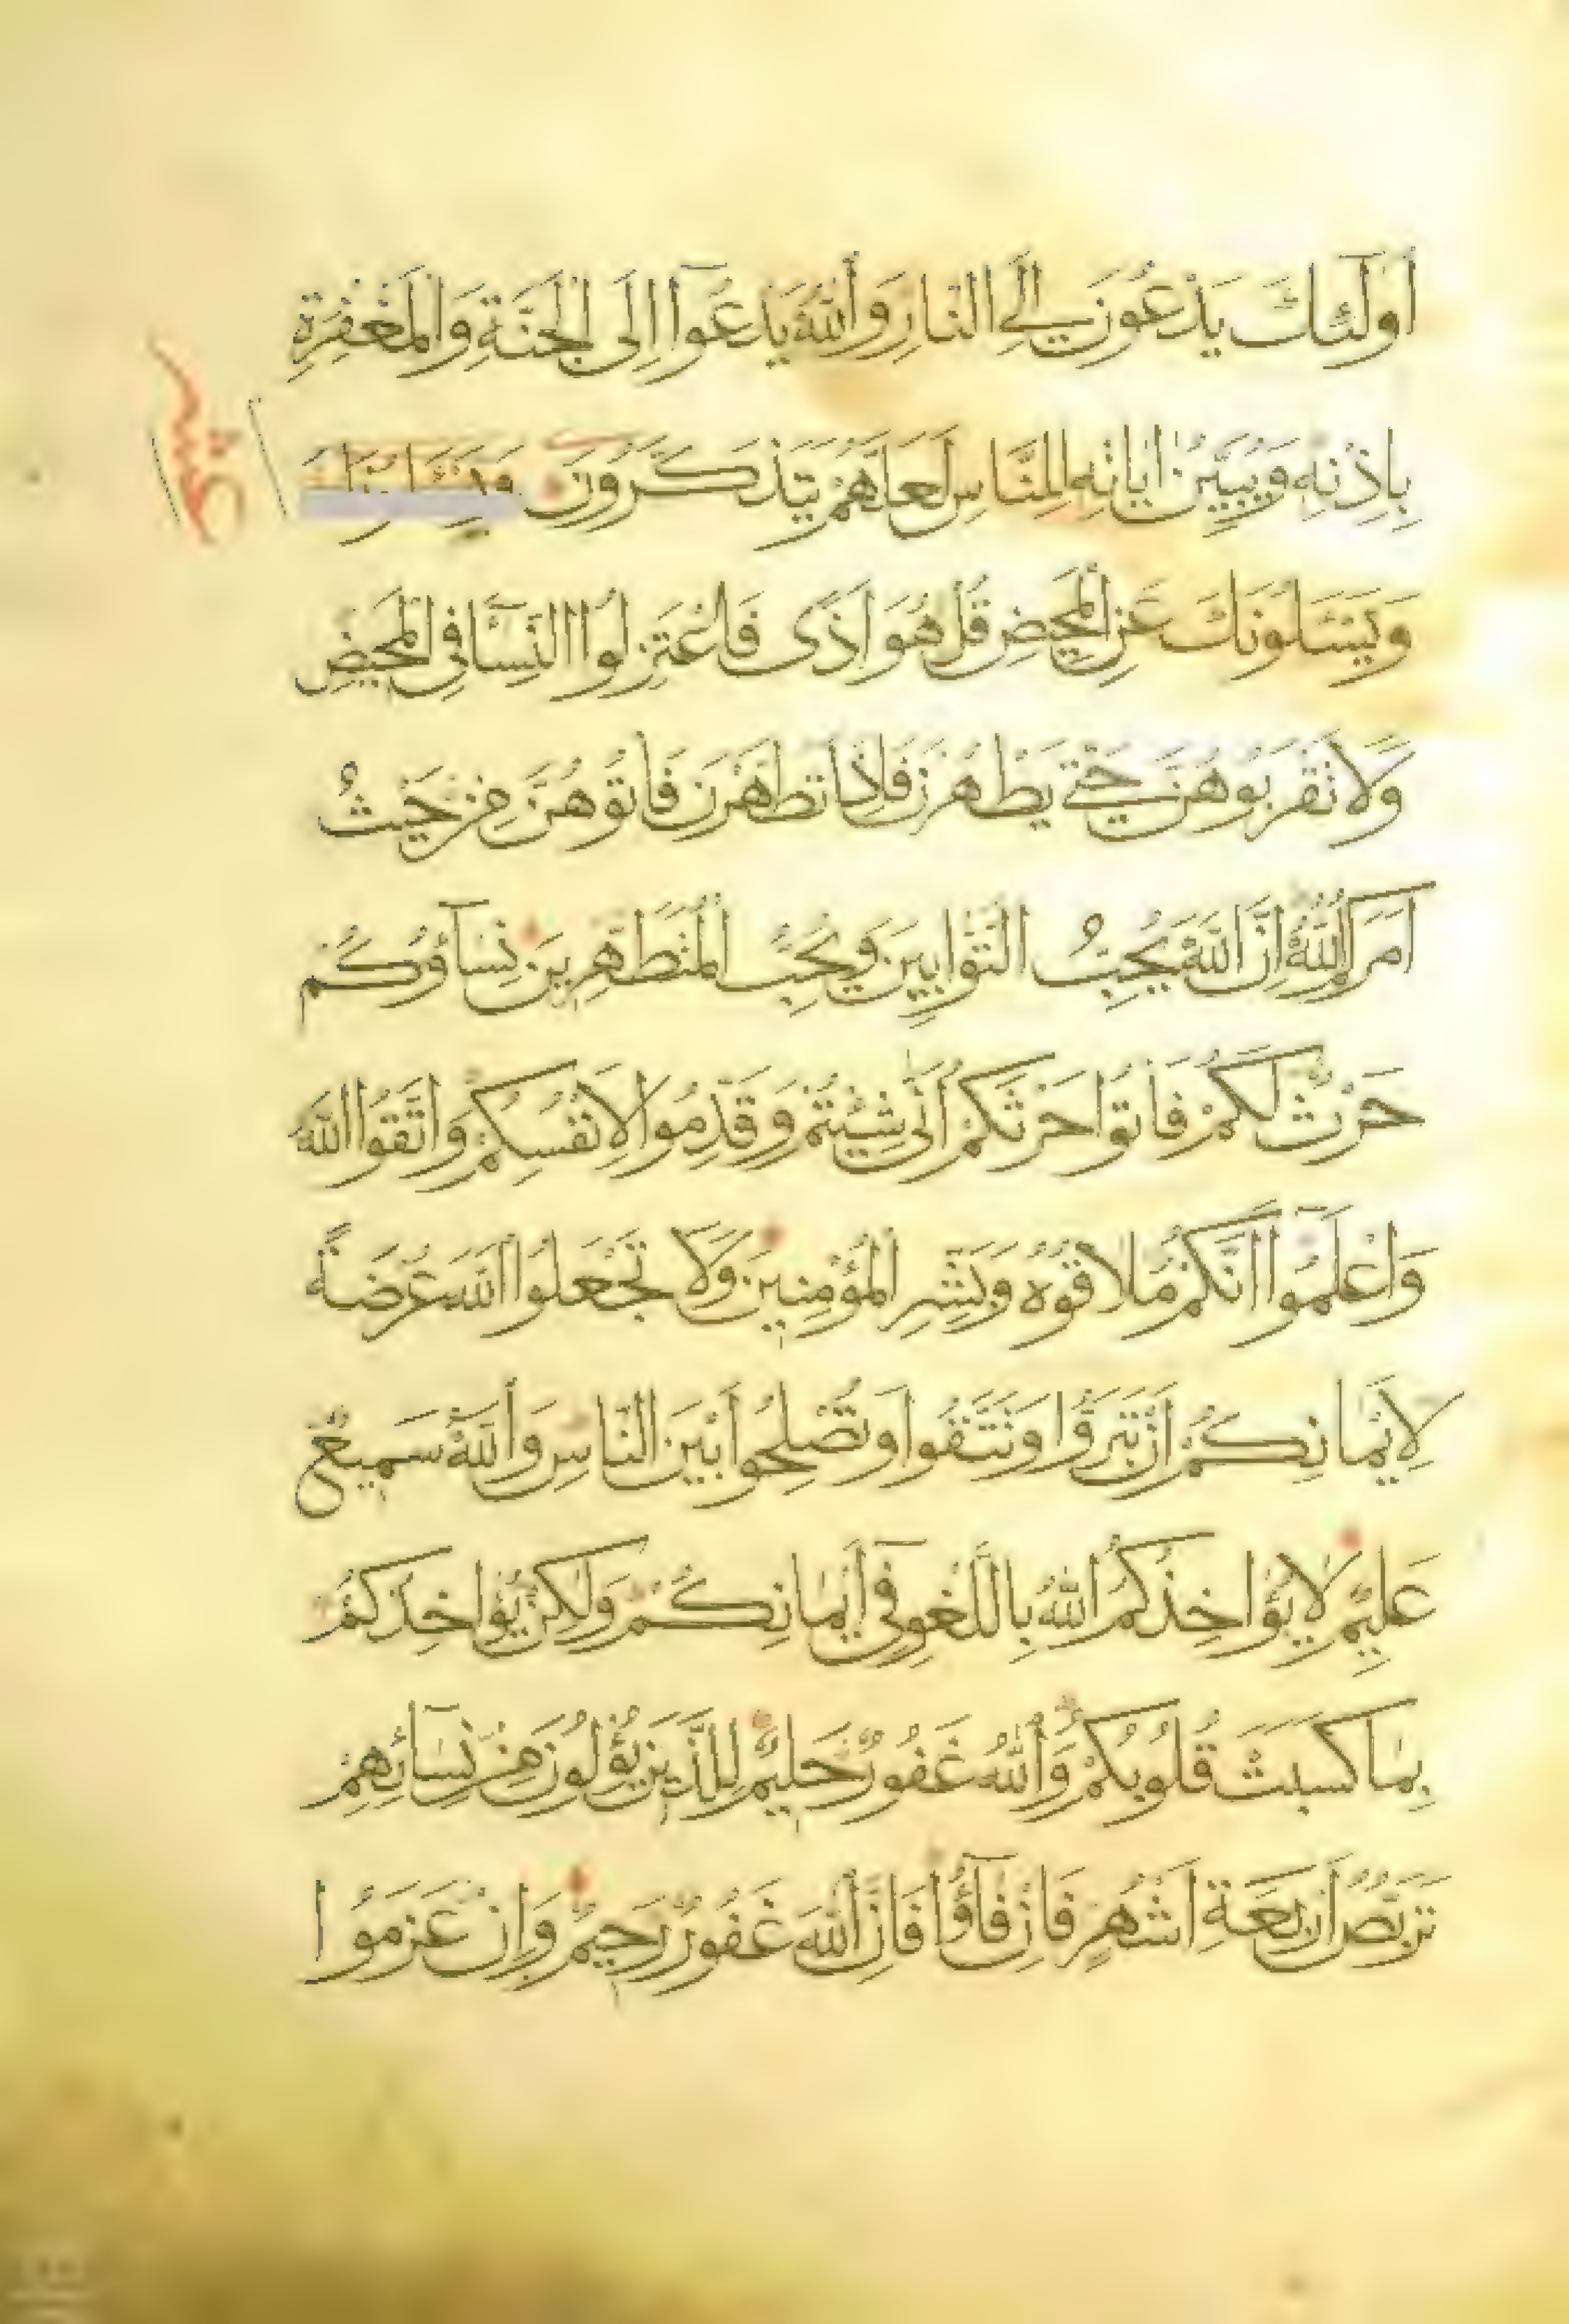 أُولَٰئِكَ يَدْعُونَ إِلَى النَّارِ وَاللَّهُ يَدْعُوا إِلَى الْجَنَّةِ وَالْمَغْفِرَةِ
بِإِذْنِهِ وَيُبَيِّنُ آيَاتِهِ لِلنَّاسِ لَعَلَّهُمْ يَتَذَكَّرُونَ
عشر
وَيَسْئَلُونَكَ عَنِ الْمَحِيضِ قُلْ هُوَ أَذًى فَاعْتَزِلُوا النِّسَآ فِي الْمَحِيضِ
وَلَا تَقْرَبُوهُنَّ حَتَّى يَطْهُرْنَ فَإِذَا تَطَهَّرْنَ فَأْتُوهُنَّ مِنْ حَيْثُ
أَمَرَكُمُ اللَّهُ إِنَّ اللَّهَ يُحِبُّ التَّوَّابِينَ وَيُحِبُّ الْمُتَطَهِّرِينَ نِسَآؤُكُمْ
حَرْثٌ لَكُمْ فَأْتُوا حَرْثَكُمْ أَنَّى شِئْتُمْ وَقَدِّمُوا لِأَنْفُسِكُمْ وَاتَّقُوا اللَّهَ
وَاعْلَمُوا أَنَّكُمْ مُلَاقُوهُ وَبَشِّرِ الْمُؤْمِنِينَ وَلَا تَجْعَلُوا اللَّهَ عُرْضَةً
لِأَيْمَانِكُمْ أَنْ تَبَرُّوا وَتَتَّقُوا وَتُصْلِحُوا بَيْنَ النَّاسِ وَاللَّهُ سَمِيعٌ
عَلِيمٌ لَا يُؤَاخِذُكُمُ اللَّهُ بِاللَّغْوِ فِي أَيْمَانِكُمْ وَلَٰكِنْ يُؤَاخِذُكُمْ
بِمَا كَسَبَتْ قُلُوبُكُمْ وَاللَّهُ غَفُورٌ حَلِيمٌ لِلَّذِينَ يُؤْلُونَ مِنْ نِسَآئِهِمْ
تَرَبُّصُ أَرْبَعَةِ أَشْهُرٍ فَإِنْ فَآؤُا فَإِنَّ اللَّهَ غَفُورٌ رَحِيمٌ وَإِنْ عَزَمُوا